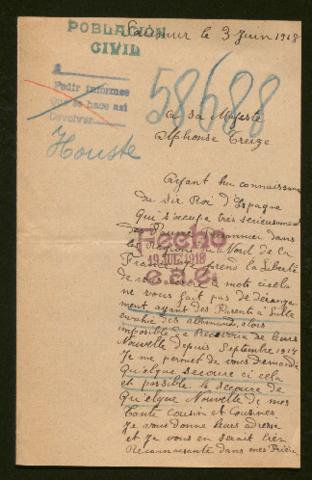 POBLACIÓN
CIVIL
le 3 Juin 1918
Pedir informes
que se hace así
Devolver
58688
Houste
a sa Majesté
Alphonse Treize
Ayant eu connaissance
du Sir Roi d'Espagne
qui s'occupe très serieusement
des Pauvre Prisonnier dans
les région du Nord de la
France Je prend la Liberté
de vous un mots ci cela
ne vous fait pas de dérange
ment ayant des Parents a Lille
envahie des allemands, etois
imposible de Recevoir de leurs
Nouvelle depuis Septembre 1914
Je me permet de vous demandé
quelque secoure ci cela
est possible le secoure de
quelque Nouvelle de mes
Tante cousin et Cousines
Je vous donne leurs adresse
et Je vous en serait très
Reconnaissante dans mes Prière
Fecho
19 JUL 1918